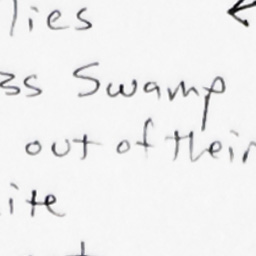 lies
ss Swamp
out of their
ite